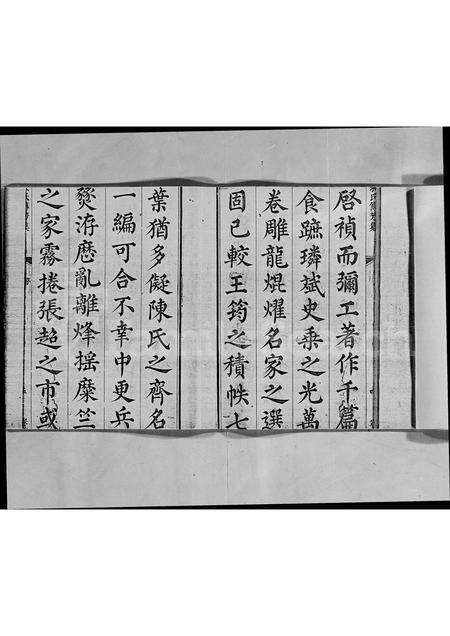 啓禎而彌工著作千篇
食蹠璘斌史乘之光萬
卷雕龍焜燿名家之選
固已較王筠之積帙七
葉猶多儗陳氏之齊名
一編可合不幸中更兵
燹洊歷亂離烽搖糜竺
之家霧捲張超之市或